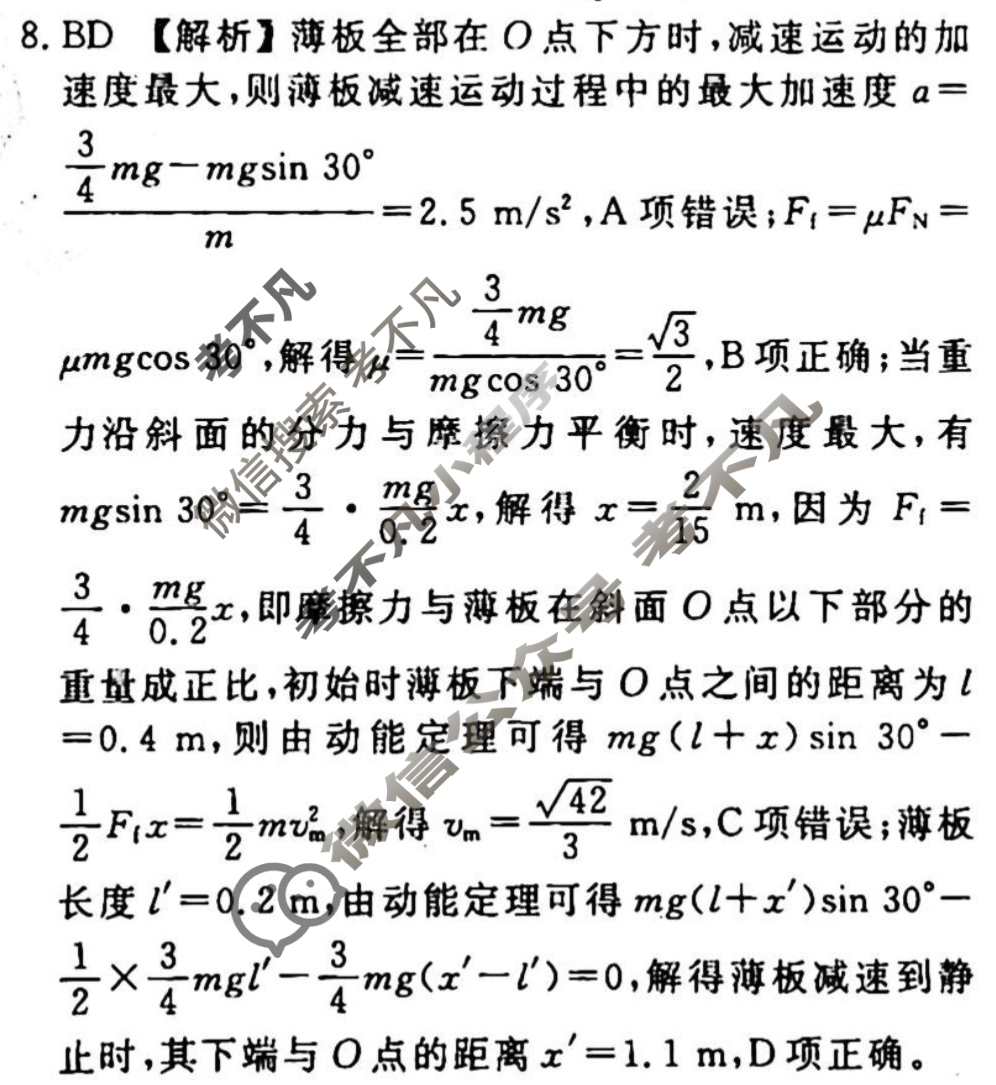 8. BD 【解析】薄板全部在 O 点下方时,减速运动的加
速度最大,则薄板减速运动过程中的最大加速度 a=
\frac{\frac{3}{4}mg-mgsin 30°}{m}=2.5 m/s²,A 项错误;F_f=μF_N=
μmgcos 30°,解得 μ=\frac{\frac{3}{4}mg}{mgcos 30°}=\frac{√3}{2},B 项正确;当重
力沿斜面的分力与摩擦力平衡时,速度最大,有
mgsin 30°=\frac{3}{4}·\frac{mg}{0.2}x,解得 x=\frac{2}{15} m,因为 F_f=
\frac{3}{4}·\frac{mg}{0.2}x,即摩擦力与薄板在斜面 O 点以下部分的
重量成正比,初始时薄板下端与 O 点之间的距离为 l
=0.4 m,则由动能定理可得 mg(l+x)sin 30°-
\frac{1}{2}F_f x=\frac{1}{2}mv_m²,解得 v_m=\frac{√42}{3} m/s,C 项错误;薄板
长度 l′=0.2 m,由动能定理可得 mg(l+x′)sin 30°-
\frac{1}{2}×\frac{3}{4}mgl′-\frac{3}{4}mg(x′-l′)=0,解得薄板减速到静
止时,其下端与 O 点的距离 x′=1.1 m,D 项正确。
考不凡
微信搜索 考不凡
考不凡小程序
微信公众号 考不凡